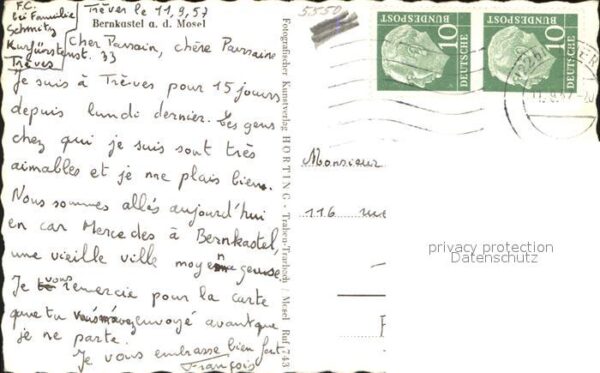 F.C.
bei Familie
Schmitz
Kurfürstenst. 33
Trèves
Trèves le 11.9.57
Bernkastel a. d. Mosel
Cher Parrain, chère Parraine
Je suis à Trèves pour 15 jours
depuis lundi dernier. Les gens
chez qui je suis sont très
aimables et je me plais bien.
Nous sommes allés aujourd'hui
en car Mercedes à Bernkastel,
une vieille ville moyennageuse
Je vous remercie pour la carte
que tu envoyé avant que
je ne parte.
Je vous embrasse bien fort
François
Fotografischer Kunstverlag HORTING · Traben-Trarbach / Mosel Ruf 743
5550
10
DEUTSCHE
BUNDESPOST
10
DEUTSCHE
BUNDESPOST
Monsieur
116
privacy protection
Datenschutz